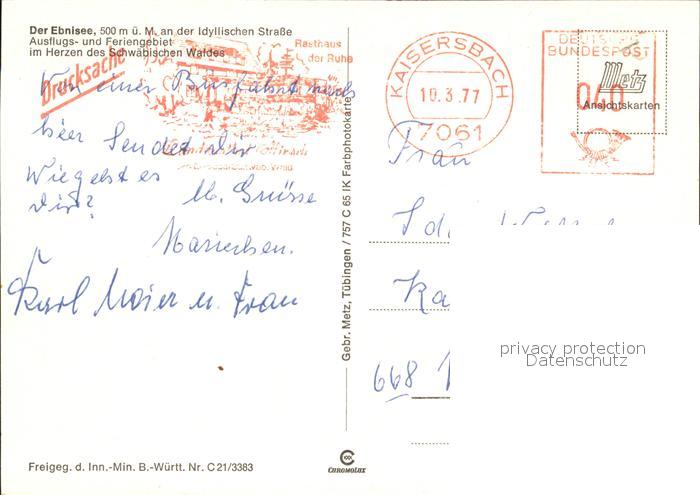 Der Ebnisee, 500 m ü. M. an der Idyllischen Straße
Ausflugs- und Feriengebiet
im Herzen des Schwäbischen Waldes
Drucksache
Rasthaus
der Ruhe
Von einer Busfahrt nach
hier Sendet Dir
Wie gehst es
Dir?
M. Grüsse
Mariechen.
Karl Maier u. Frau
Gebr. Metz, Tübingen / 757 C 65 IK Farbphotokarte
KAISERSBACH
10.3.77
7061
DEUTSCHE
BUNDESPOST
Metz
Ansichtskarten
Frau
Ka
668
privacy protection
Datenschutz
Freigeg. d. Inn.-Min. B.-Württ. Nr. C 21/3383
CHROMOLUX